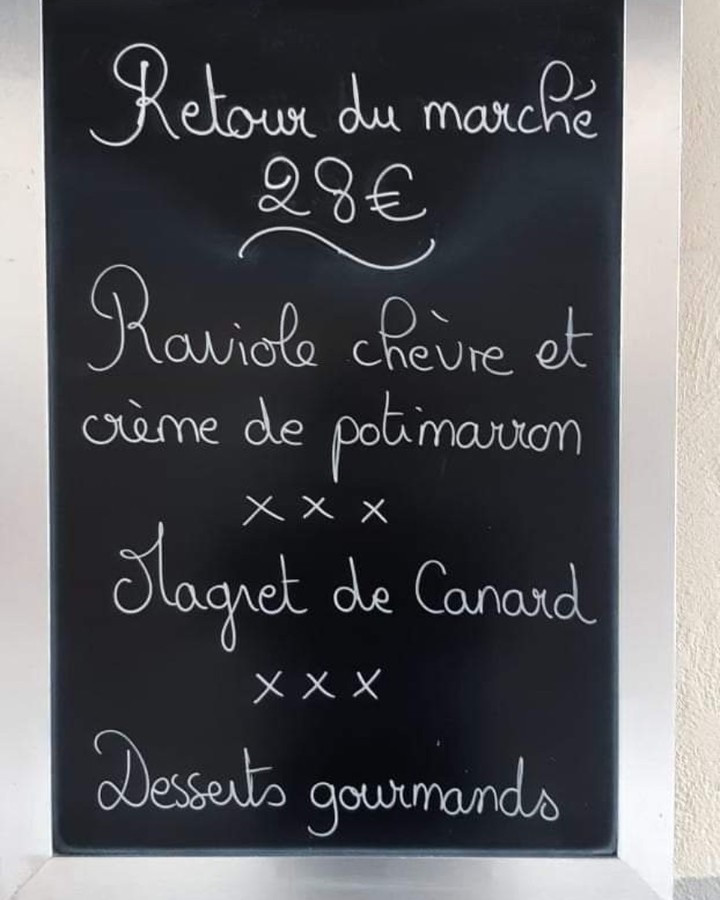 Retour du marché
28€
Raviole chèvre et
crème de potimarron
x x x
Magret de Canard
x x x
Desserts gourmands